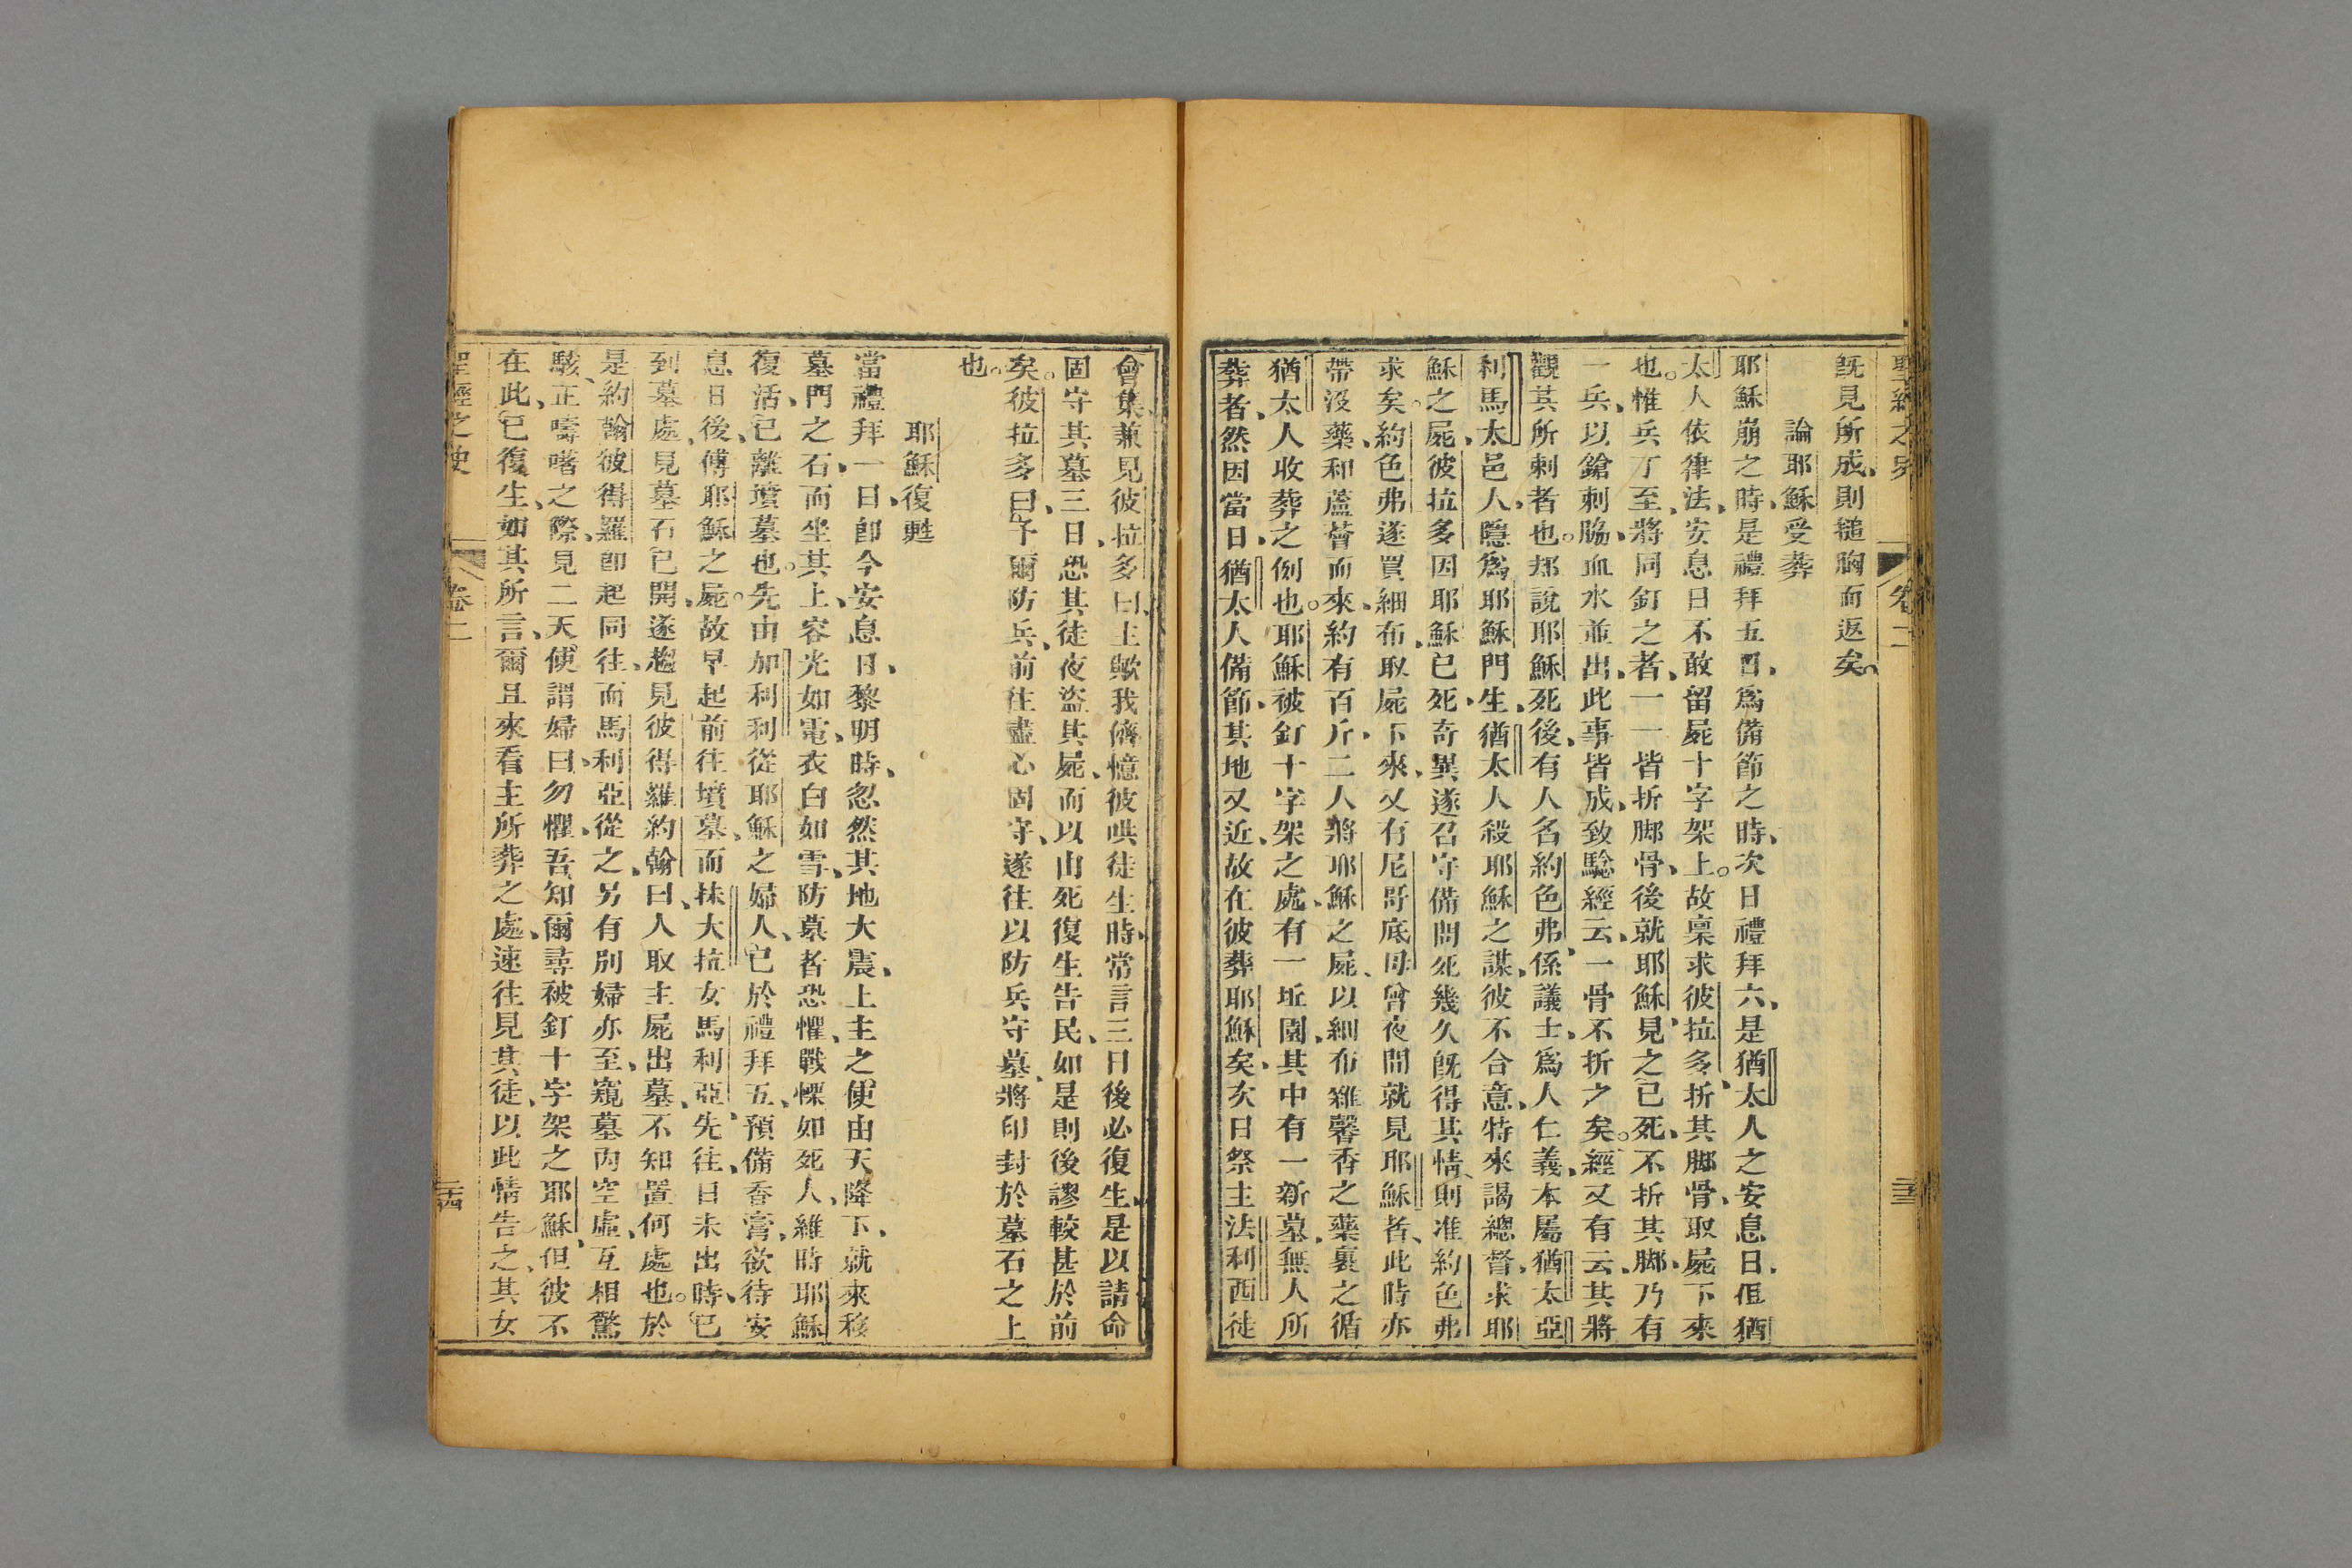 聖經之史 卷二 二十三
旣見所成、則搥胸而返矣。
論耶穌受葬
耶穌崩之時、是禮拜五日、爲備節之時、次日禮拜六、是猶太人之安息日、但猶
太人依律法、安息日不敢留屍十字架上。故稟求彼拉多、折其脚骨、取屍下來
也。惟兵丁至、將同釘之者、一一皆折脚骨、後就耶穌、見之已死、不折其脚、乃有
一兵、以鎗刺脇、血水並出、此事皆成、致騐經云、一骨不折之矣。經又有云、其將
觀其所刺者也。却說耶穌死後、有人名約色弗、係議士、爲人仁義、本屬猶太亞
利馬太邑人、隱爲耶穌門生、猶太人殺耶穌之謀、彼不合意、特來謁總督、求耶
穌之屍、彼拉多因耶穌已死、奇異遂召守備問死幾久旣得其情、則准約色弗
求矣。約色弗遂買細布、取屍下來、又有尼哥底母曾夜間就見耶穌者、此時亦
帶沒藥、和蘆薈而來、約有百斤、二人將耶穌之屍、以細布雜馨香之藥裹之循
猶太人收葬之例也。耶穌被釘十字架之處、有一坵園、其中有一新墓、無人所
葬者、然因當日、猶太人備節、其地又近、故在彼葬耶穌矣、亥日祭主法利西徒
會集、兼見彼拉多曰、主歟我儕憶彼哄徒生時、常言三日後必復生、是以請命
固守其墓三日、恐其徒夜盜其屍、而以由死復生告民、如是則後謬較甚於前
矣。彼拉多曰、予爾防兵、前往盡心固守、遂往以防兵守墓、將印封於墓石之上
也。
耶穌復甦
當禮拜一日、卽今安息日、黎明時、忽然其地大震、上主之使由天降下、就來移
墓門之石、而坐其上、容光如電、衣白如雪、防墓者恐懼、戰慄如死人、維時耶穌
復活、已離墳墓也。先由加利利從耶穌之婦人、已於禮拜五、預備香膏、欲待安
息日後、傅耶穌之屍。故早起前往墳墓、而抹大拉女馬利亞、先往、日未出時、已
到墓處、見墓石已開、遂趨見彼得羅約翰曰、人取主屍出墓、不知置何處也。於
是約翰彼得羅卽起同往、而馬利亞從之、另有別婦亦至、窺墓內空虛、互相驚
駭、正嘮嗒之際、見二天使謂婦曰、勿懼、吾知爾尋被釘十字架之耶穌、但彼不
在此、已復生、如其所言、爾且來看主所葬之處、速往見其徒、以此情告之、其女
聖經之史 卷二 二十四